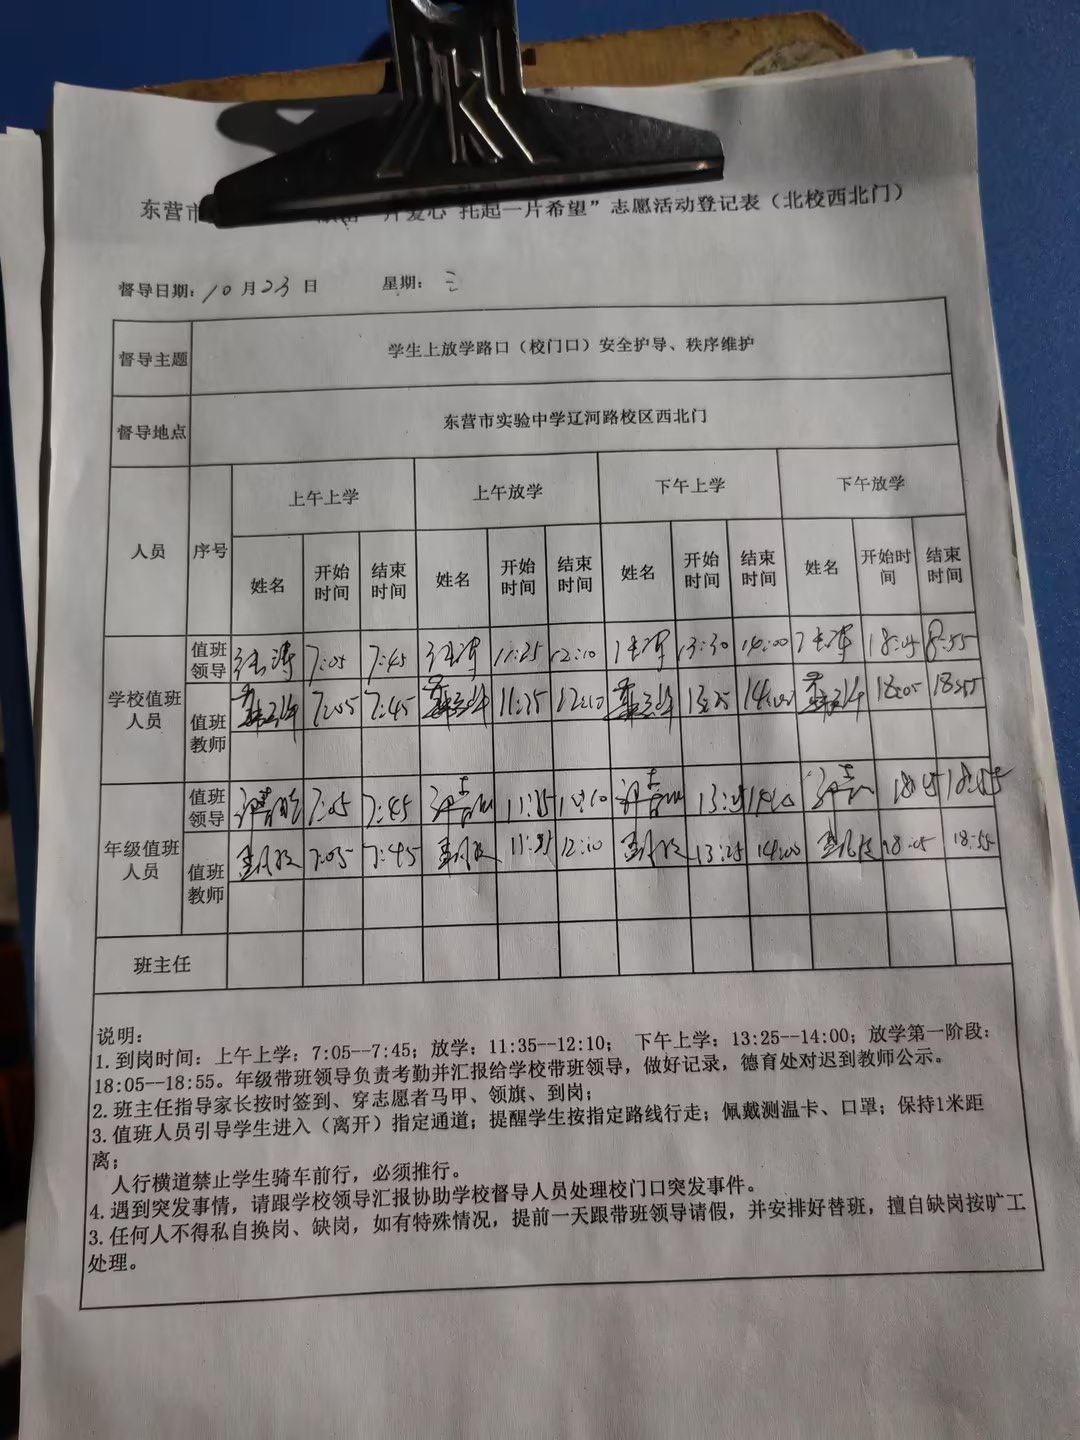 东营市 片爱心 托起一片希望”志愿活动登记表（北校西北门）
督导日期：10月23日 星期：三
督导主题 学生上放学路口（校门口）安全护导、秩序维护
督导地点 东营市实验中学辽河路校区西北门
人员 序号 上午上学 上午放学 下午上学 下午放学
姓名 开始时间 结束时间 姓名 开始时间 结束时间 姓名 开始时间 结束时间 姓名 开始时间 结束时间
学校值班人员 值班领导 7:05 7:45 12:10 13:30 14:00
值班教师 7:05 7:45 11:35 12:10 14:00 18:05 18:55
年级值班人员 值班领导 7:05 7:45 11:35
值班教师 7:05 7:45 11:35 12:10 13:25 14:00 18:05 18:55
班主任
说明：
1.到岗时间：上午上学：7:05--7:45；放学：11:35--12:10； 下午上学：13:25--14:00；放学第一阶段：
18:05--18:55。年级带班领导负责考勤并汇报给学校带班领导，做好记录，德育处对迟到教师公示。
2.班主任指导家长按时签到、穿志愿者马甲、领旗、到岗；
3.值班人员引导学生进入（离开）指定通道；提醒学生按指定路线行走；佩戴测温卡、口罩；保持1米距
离；
人行横道禁止学生骑车前行，必须推行。
4.遇到突发事情，请跟学校领导汇报协助学校督导人员处理校门口突发事件。
3.任何人不得私自换岗、缺岗，如有特殊情况，提前一天跟带班领导请假，并安排好替班，擅自缺岗按旷工
处理。